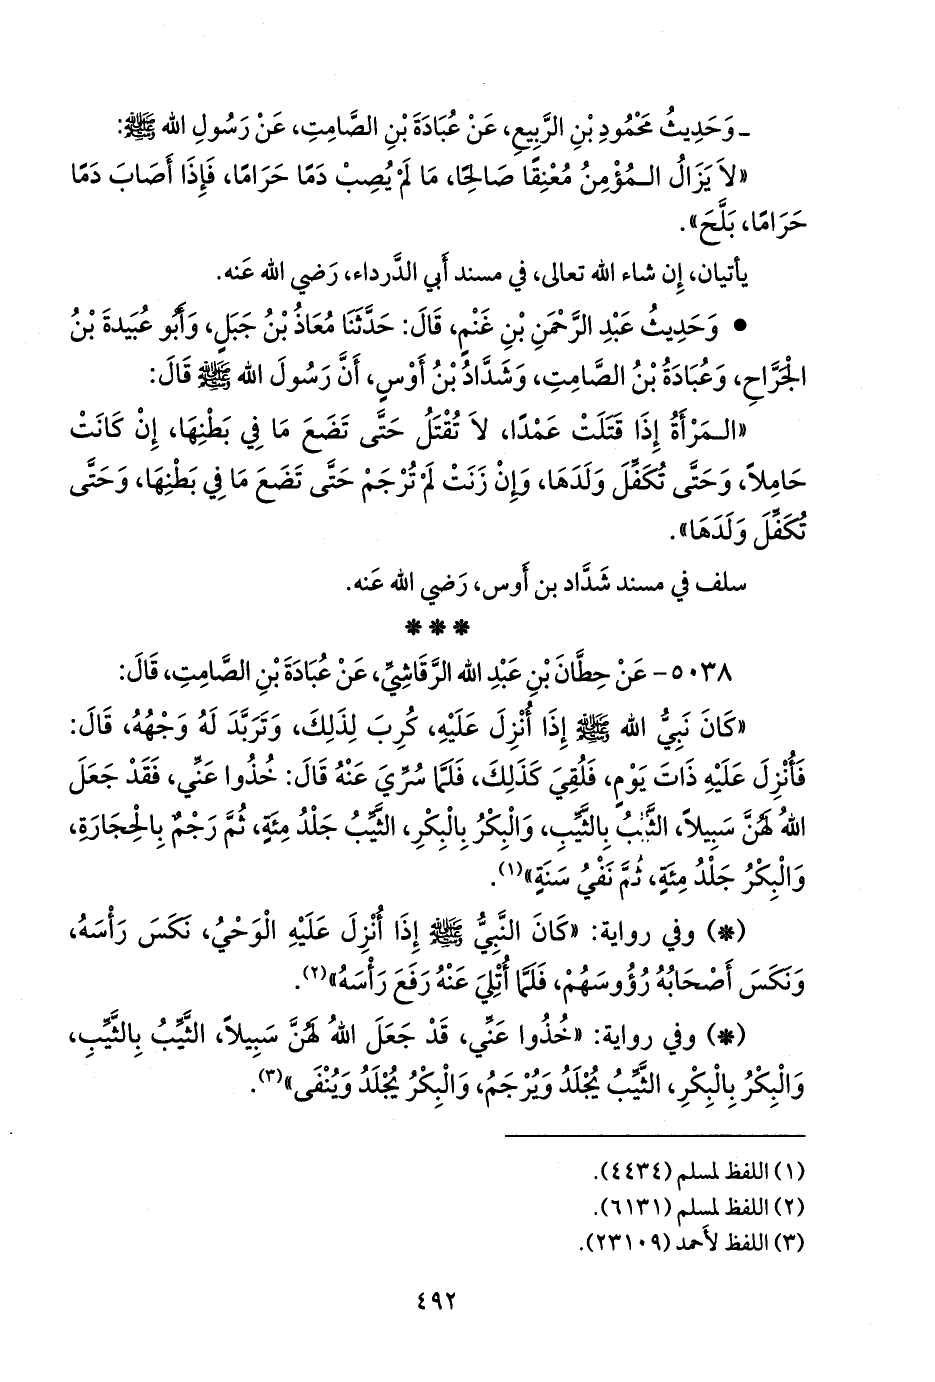 ـ وَحَدِيثُ مَحْمُودِ بْنِ الرَّبِيعِ، عَنْ عُبَادَةَ بْنِ الصَّامِتِ، عَنْ رَسُولِ الله ﷺ:
«لاَ يَزَالُ الـمُؤْمِنُ مُعْنِقًا صَالِحًا، مَا لَمْ يُصِبْ دَمًا حَرَامًا، فَإِذَا أَصَابَ دَمًا
حَرَامًا، بَلَّحَ».
يأتيان، إِن شاء الله تعالى، في مسند أَبي الدَّرداء، رَضي الله عَنه.
• وَحَدِيثُ عَبْدِ الرَّحْمَنِ بْنِ غَنْمٍ، قَالَ: حَدَّثَنَا مُعَاذُ بْنُ جَبَلٍ، وَأَبُو عُبَيدةَ بْنُ
الْجَرَّاحِ، وَعُبَادَةُ بْنُ الصَّامِتِ، وَشَدَّادُ بْنُ أَوْسٍ، أَنَّ رَسُولَ الله ﷺ قَالَ:
«الـمَرْأَةُ إِذَا قَتَلَتْ عَمْدًا، لاَ تُقْتَلُ حَتَّى تَضَعَ مَا فِي بَطْنِهَا، إِنْ كَانَتْ
حَامِلاً، وَحَتَّى تُكَفِّلَ وَلَدَهَا، وَإِنْ زَنَتْ لَمْ تُرْجَمْ حَتَّى تَضَعَ مَا فِي بَطْنِهَا، وَحَتَّى
تُكَفِّلَ وَلَدَهَا».
سلف في مسند شَدَّاد بن أَوس، رَضي الله عَنه.
* * *
٥٠٣٨ - عَنْ حِطَّانَ بْنِ عَبْدِ الله الرَّقَاشِيِّ، عَنْ عُبَادَةَ بْنِ الصَّامِتِ، قَالَ:
«كَانَ نَبِيُّ الله ﷺ إِذَا أُنْزِلَ عَلَيْهِ، كُرِبَ لِذَلِكَ، وَتَرَبَّدَ لَهُ وَجْهُهُ، قَالَ:
فَأُنْزِلَ عَلَيْهِ ذَاتَ يَوْمٍ، فَلُقِيَ كَذَلِكَ، فَلَمَّا سُرِّيَ عَنْهُ قَالَ: خُذُوا عَنِّي، فَقَدْ جَعَلَ
اللهُ لَهُنَّ سَبِيلاً، الثَّيِّبُ بِالثَّيِّبِ، وَالْبِكْرُ بِالْبِكْرِ، الثَّيِّبُ جَلْدُ مِئَةٍ، ثُمَّ رَجْمٌ بِالْحِجَارَةِ،
وَالْبِكْرُ جَلْدُ مِئَةٍ، ثُمَّ نَفْيُ سَنَةٍ»(١).
(*) وفي رواية: «كَانَ النَّبِيُّ ﷺ إِذَا أُنْزِلَ عَلَيْهِ الْوَحْيُ، نَكَسَ رَأْسَهُ،
وَنَكَسَ أَصْحَابُهُ رُؤُوسَهُمْ، فَلَمَّا أُتْلِيَ عَنْهُ رَفَعَ رَأْسَهُ»(٢).
(*) وفي رواية: «خُذُوا عَنِّي، قَدْ جَعَلَ اللهُ لَهُنَّ سَبِيلاً، الثَّيِّبُ بِالثَّيِّبِ،
وَالْبِكْرُ بِالْبِكْرِ، الثَّيِّبُ يُجْلَدُ وَيُرْجَمُ، وَالْبِكْرُ يُجْلَدُ وَيُنْفَى»(٣).
(١) اللفظ لمسلم (٤٤٣٤).
(٢) اللفظ لمسلم (٦١٣١).
(٣) اللفظ لأَحمد (٢٣١٠٩).
٤٩٢